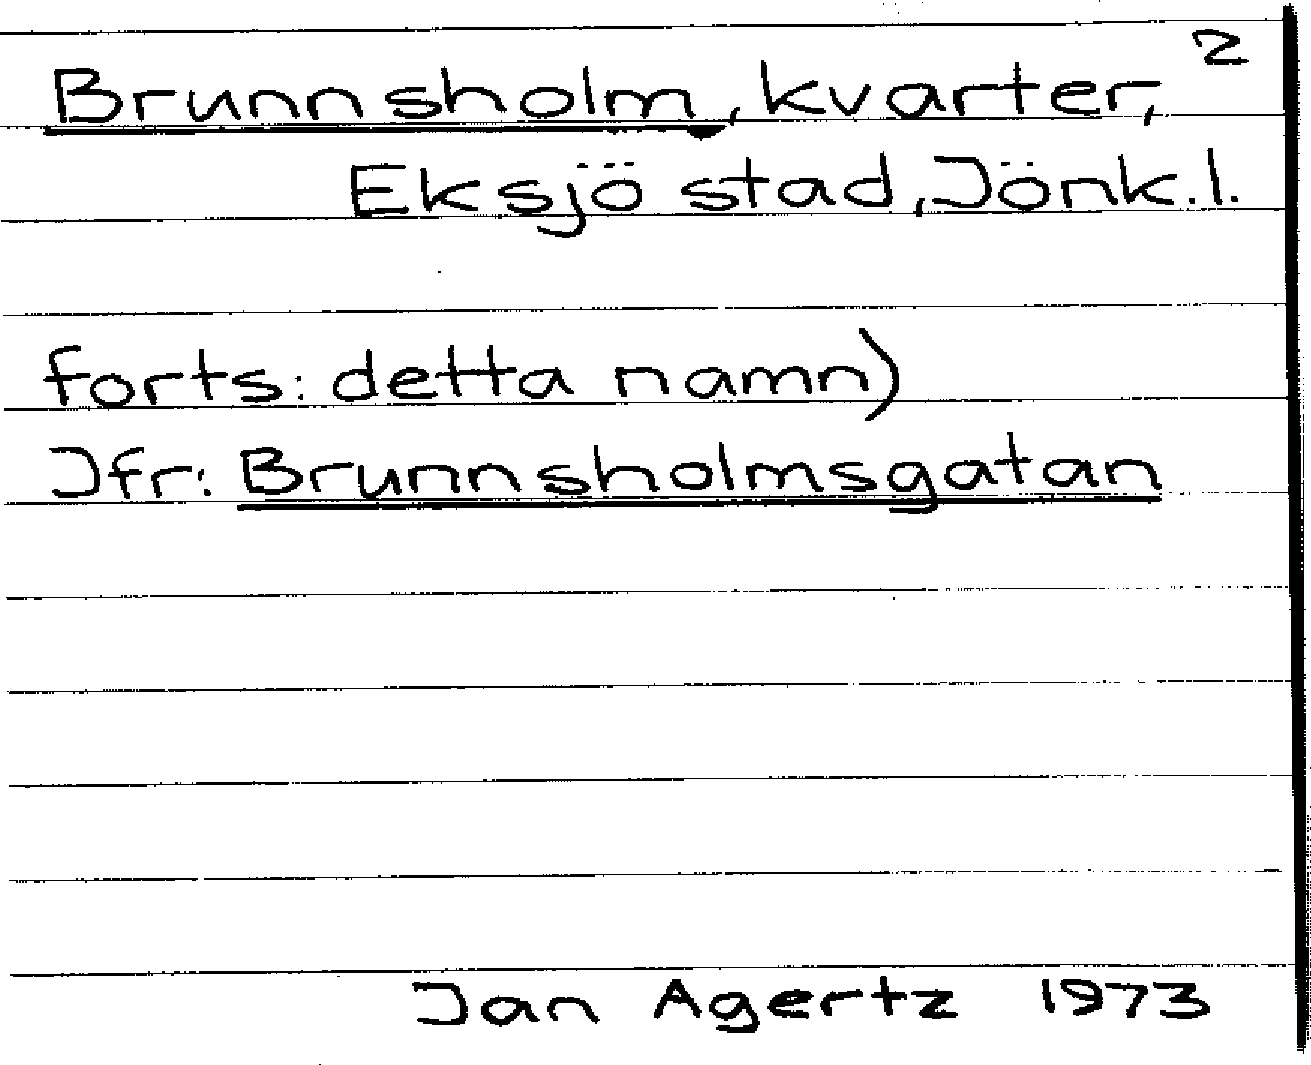 2
Brunnsholm, kvarter,
Eksjö stad, Jönk.l.
forts: detta namn)
Jfr: Brunnsholmsgatan
Jan Agertz 1973